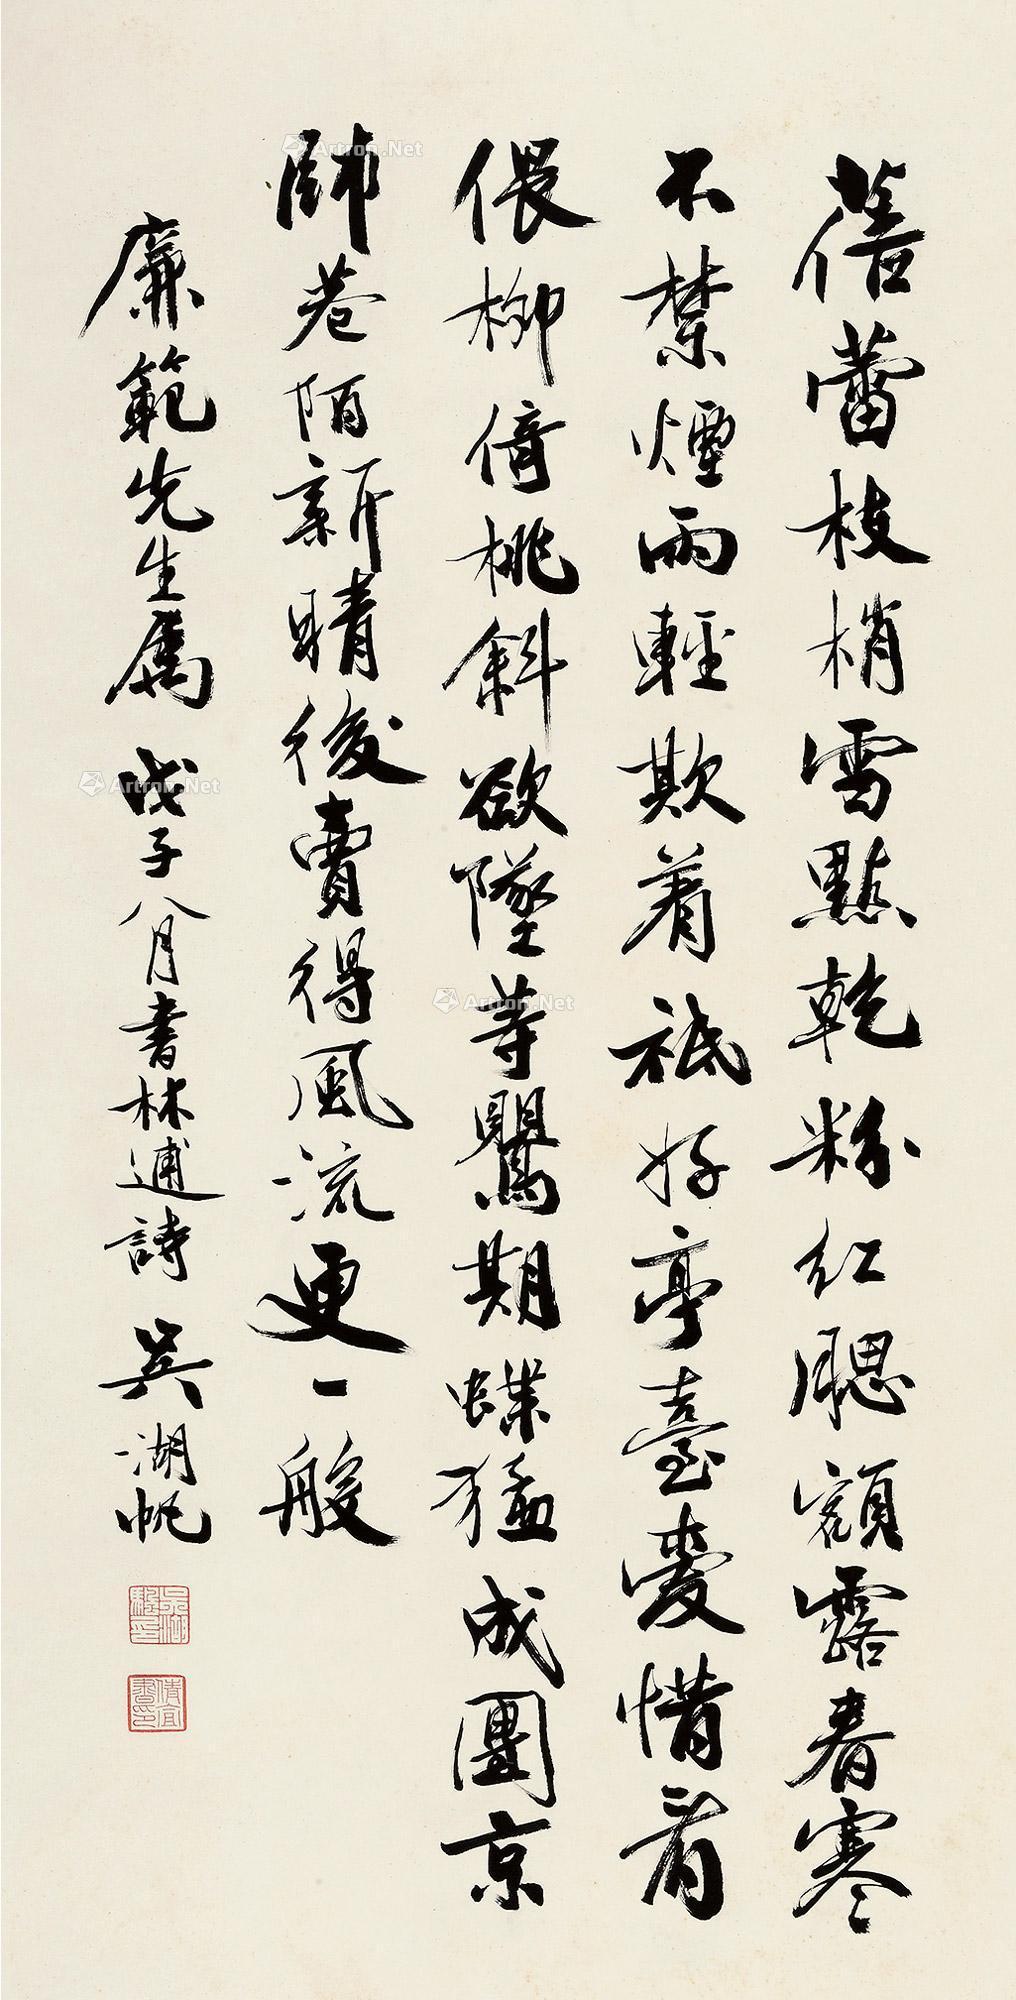 蓓蕾枝梢雪點乾粉紅腮額露春寒
不禁煙雨輕欺着祗好亭臺愛惜看
偎柳倚桃斜欲墜等鶯期蝶猛成團京
師巷陌新晴後賣得風流更一般
廉範先生屬 戊子八月書林逋詩 吳湖帆
吳湖帆印
倩宜書印
Artron.Net
Artron.Net
Artron.Net